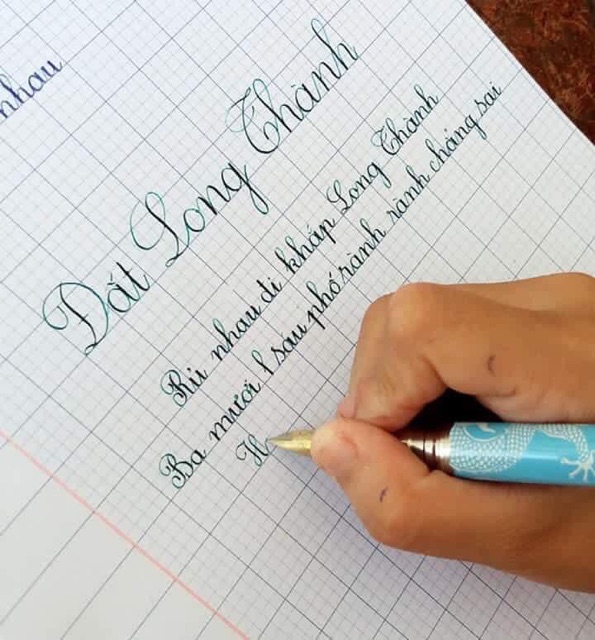 nhau
Đất Long Thành
Rủ nhau đi khắp Long Thành
Ba mươi sáu phố rành rành chẳng sai
H